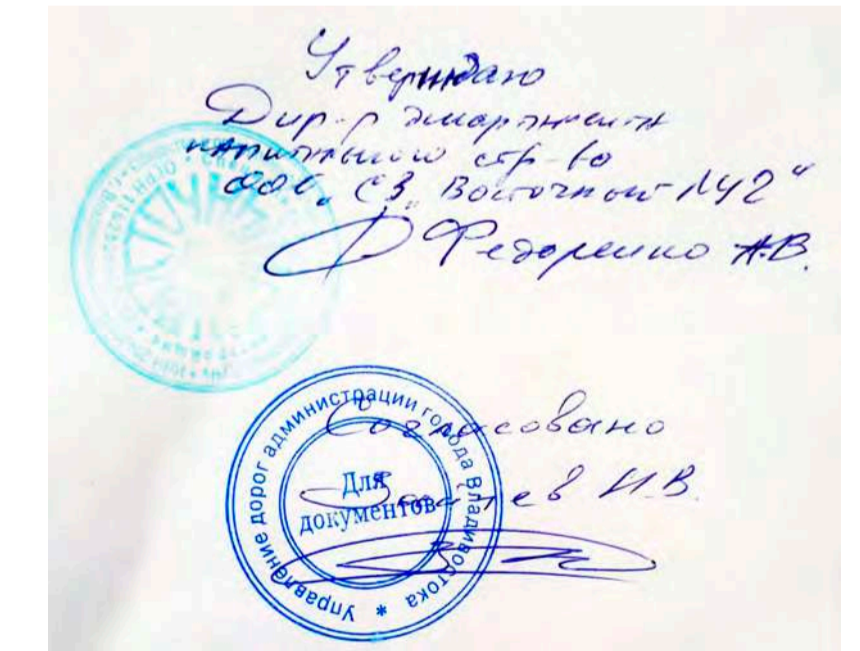 Утверждаю
Дир-р департамента
капитального стр-ва
ООО „СЗ „Восточный №2"
Федоренко А.В.
ОГРН
Согласовано
Зайцев И.В.
Управление дорог администрации города Владивостока *
Для
документов